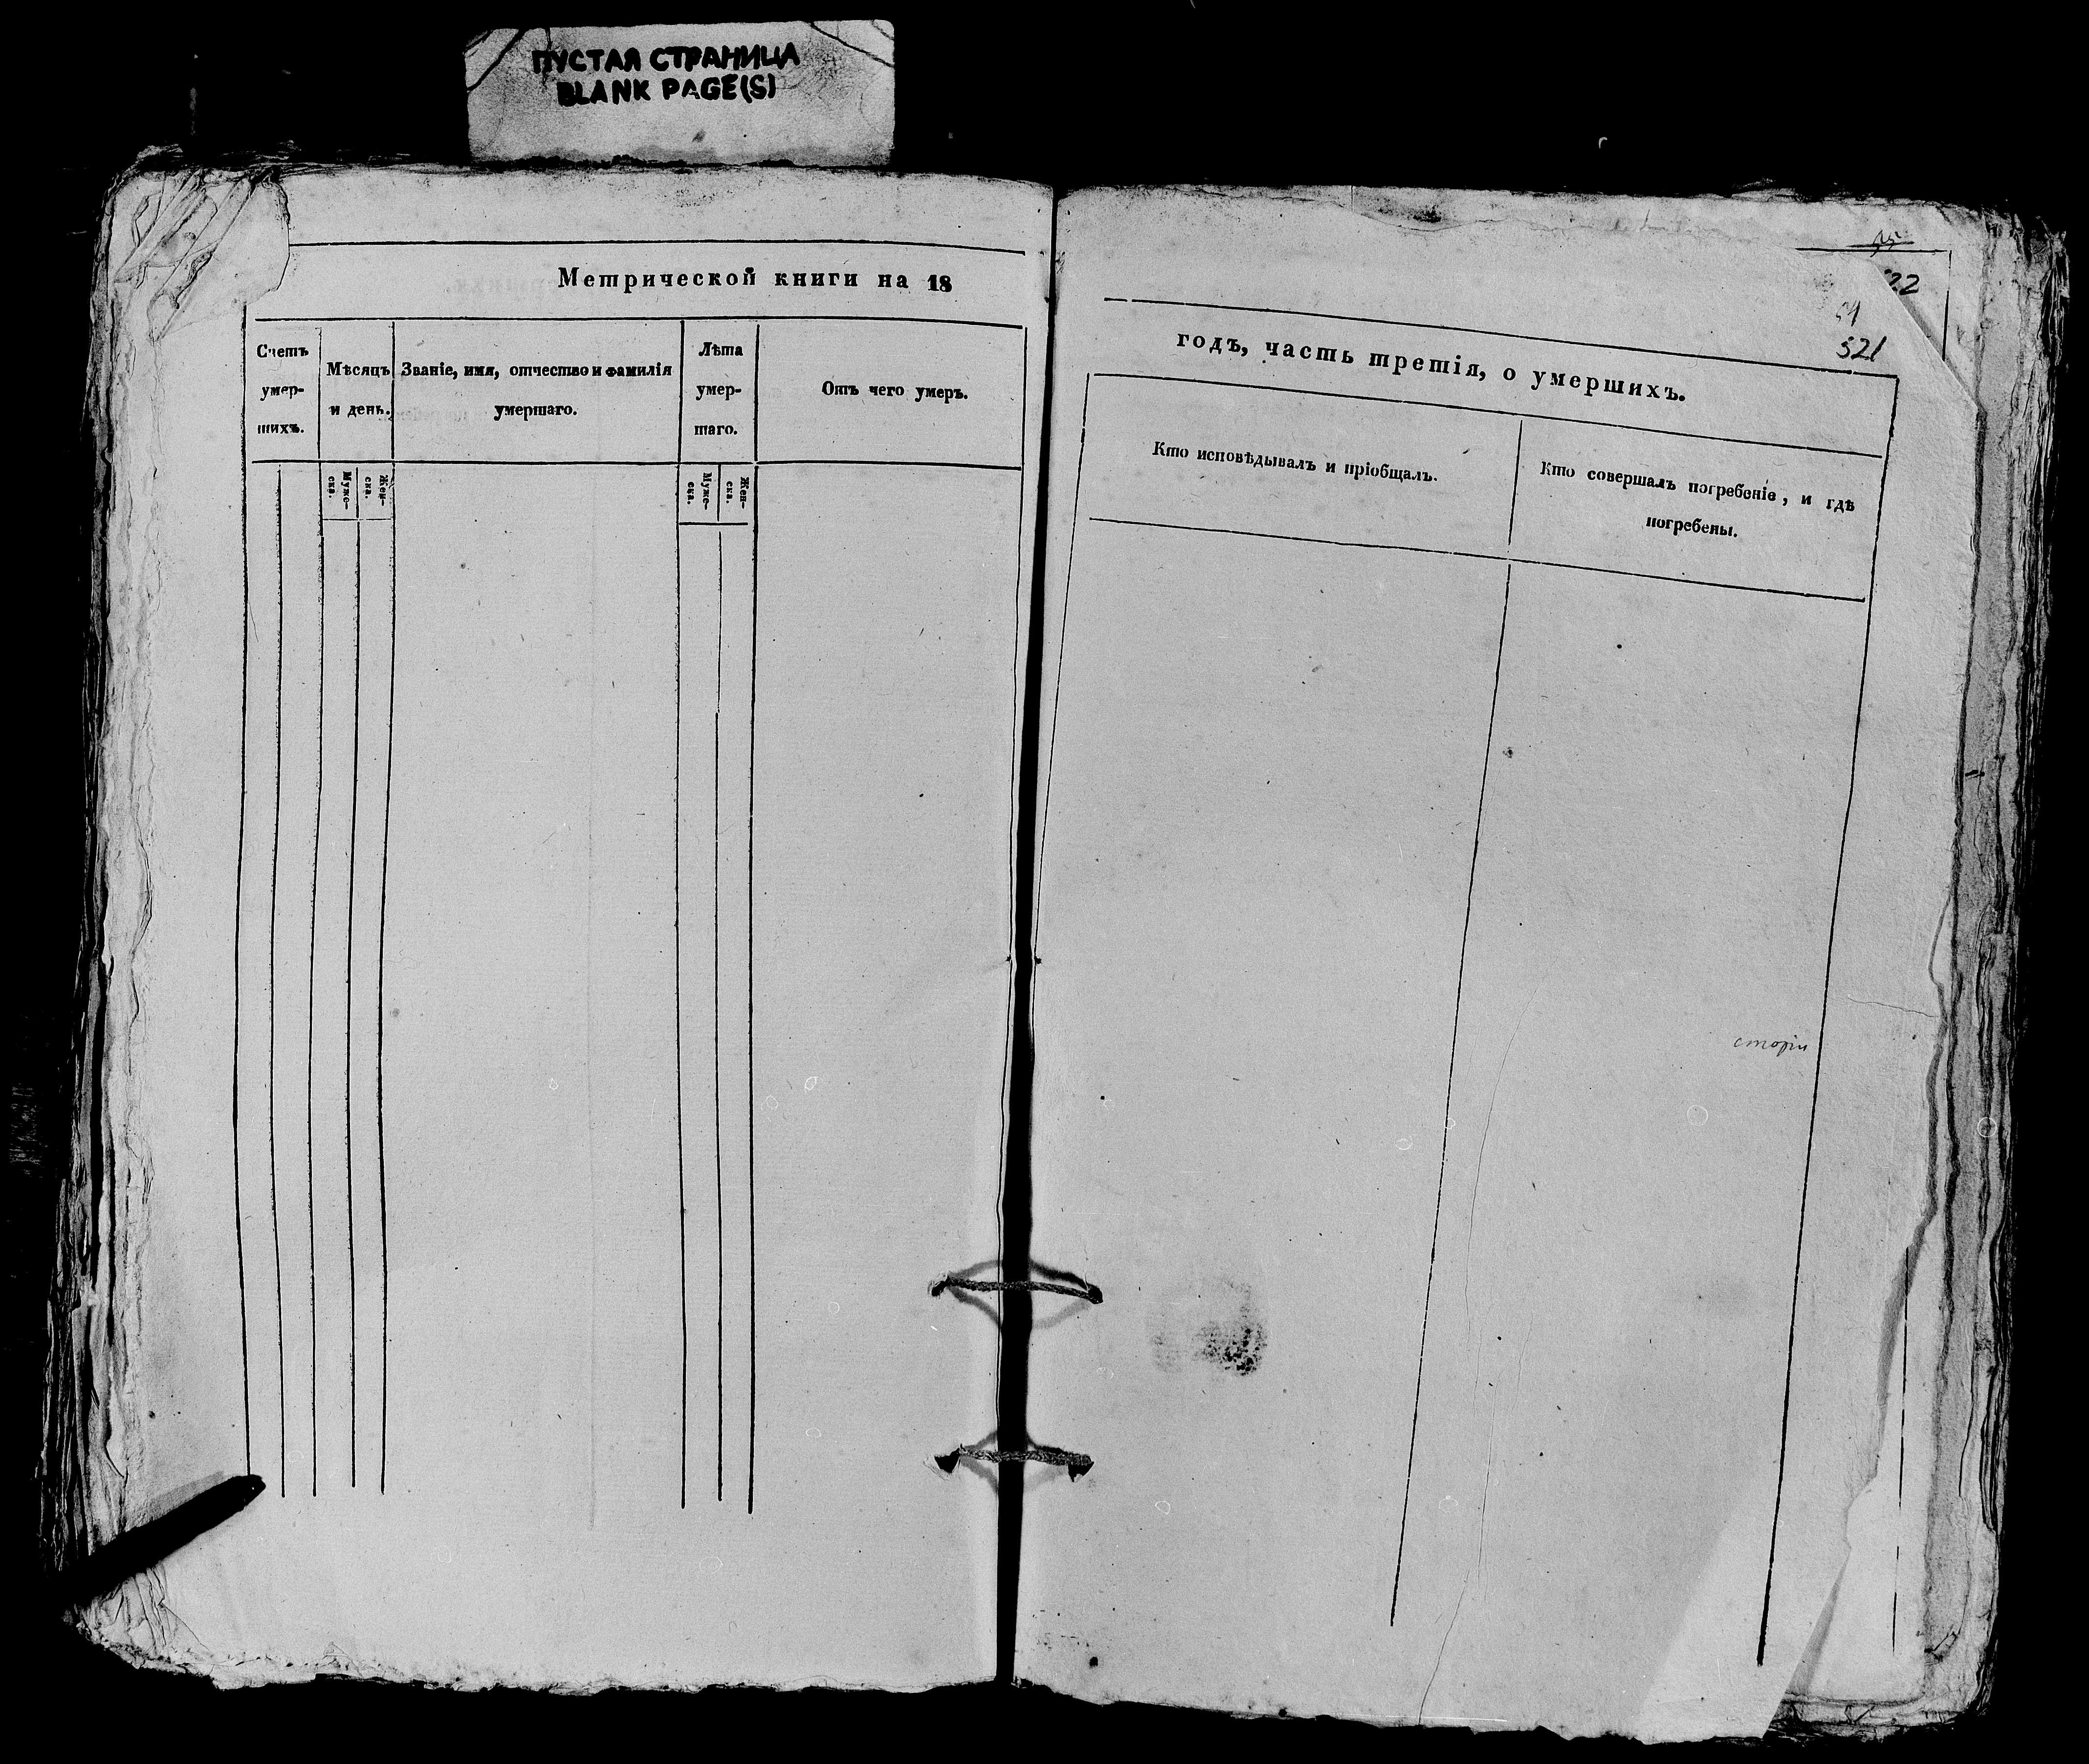 ПУСТАЯ СТРАНИЦА
BLANK PAGE(S)
Метрической книги на 18
Счетъ
умер-
шихъ.
Мѣсяцъ
и день.
Званіе, имя, отчество и фамилія
умершаго.
Лѣта
умер-
шаго.
Отъ чего умеръ.
Муже-
ска.
Жен-
ска.
Муже-
ска.
Жен-
ска.
22
321
годъ, часть третія, о умершихъ.
Кто исповѣдывалъ и пріобщалъ.
Кто совершалъ погребеніе, и гдѣ
погребены.